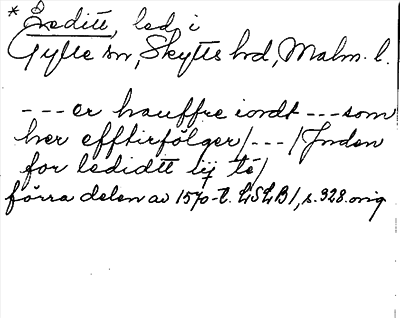 * Leditt, led i
Gylle sn, Skytts hd, Malm. l.
--- er hauffre iordt --- som
her efftirfölger/---/Inden
for ledidtt lij té/
förra delen av 1570-t. LSLB 1, s. 328. orig